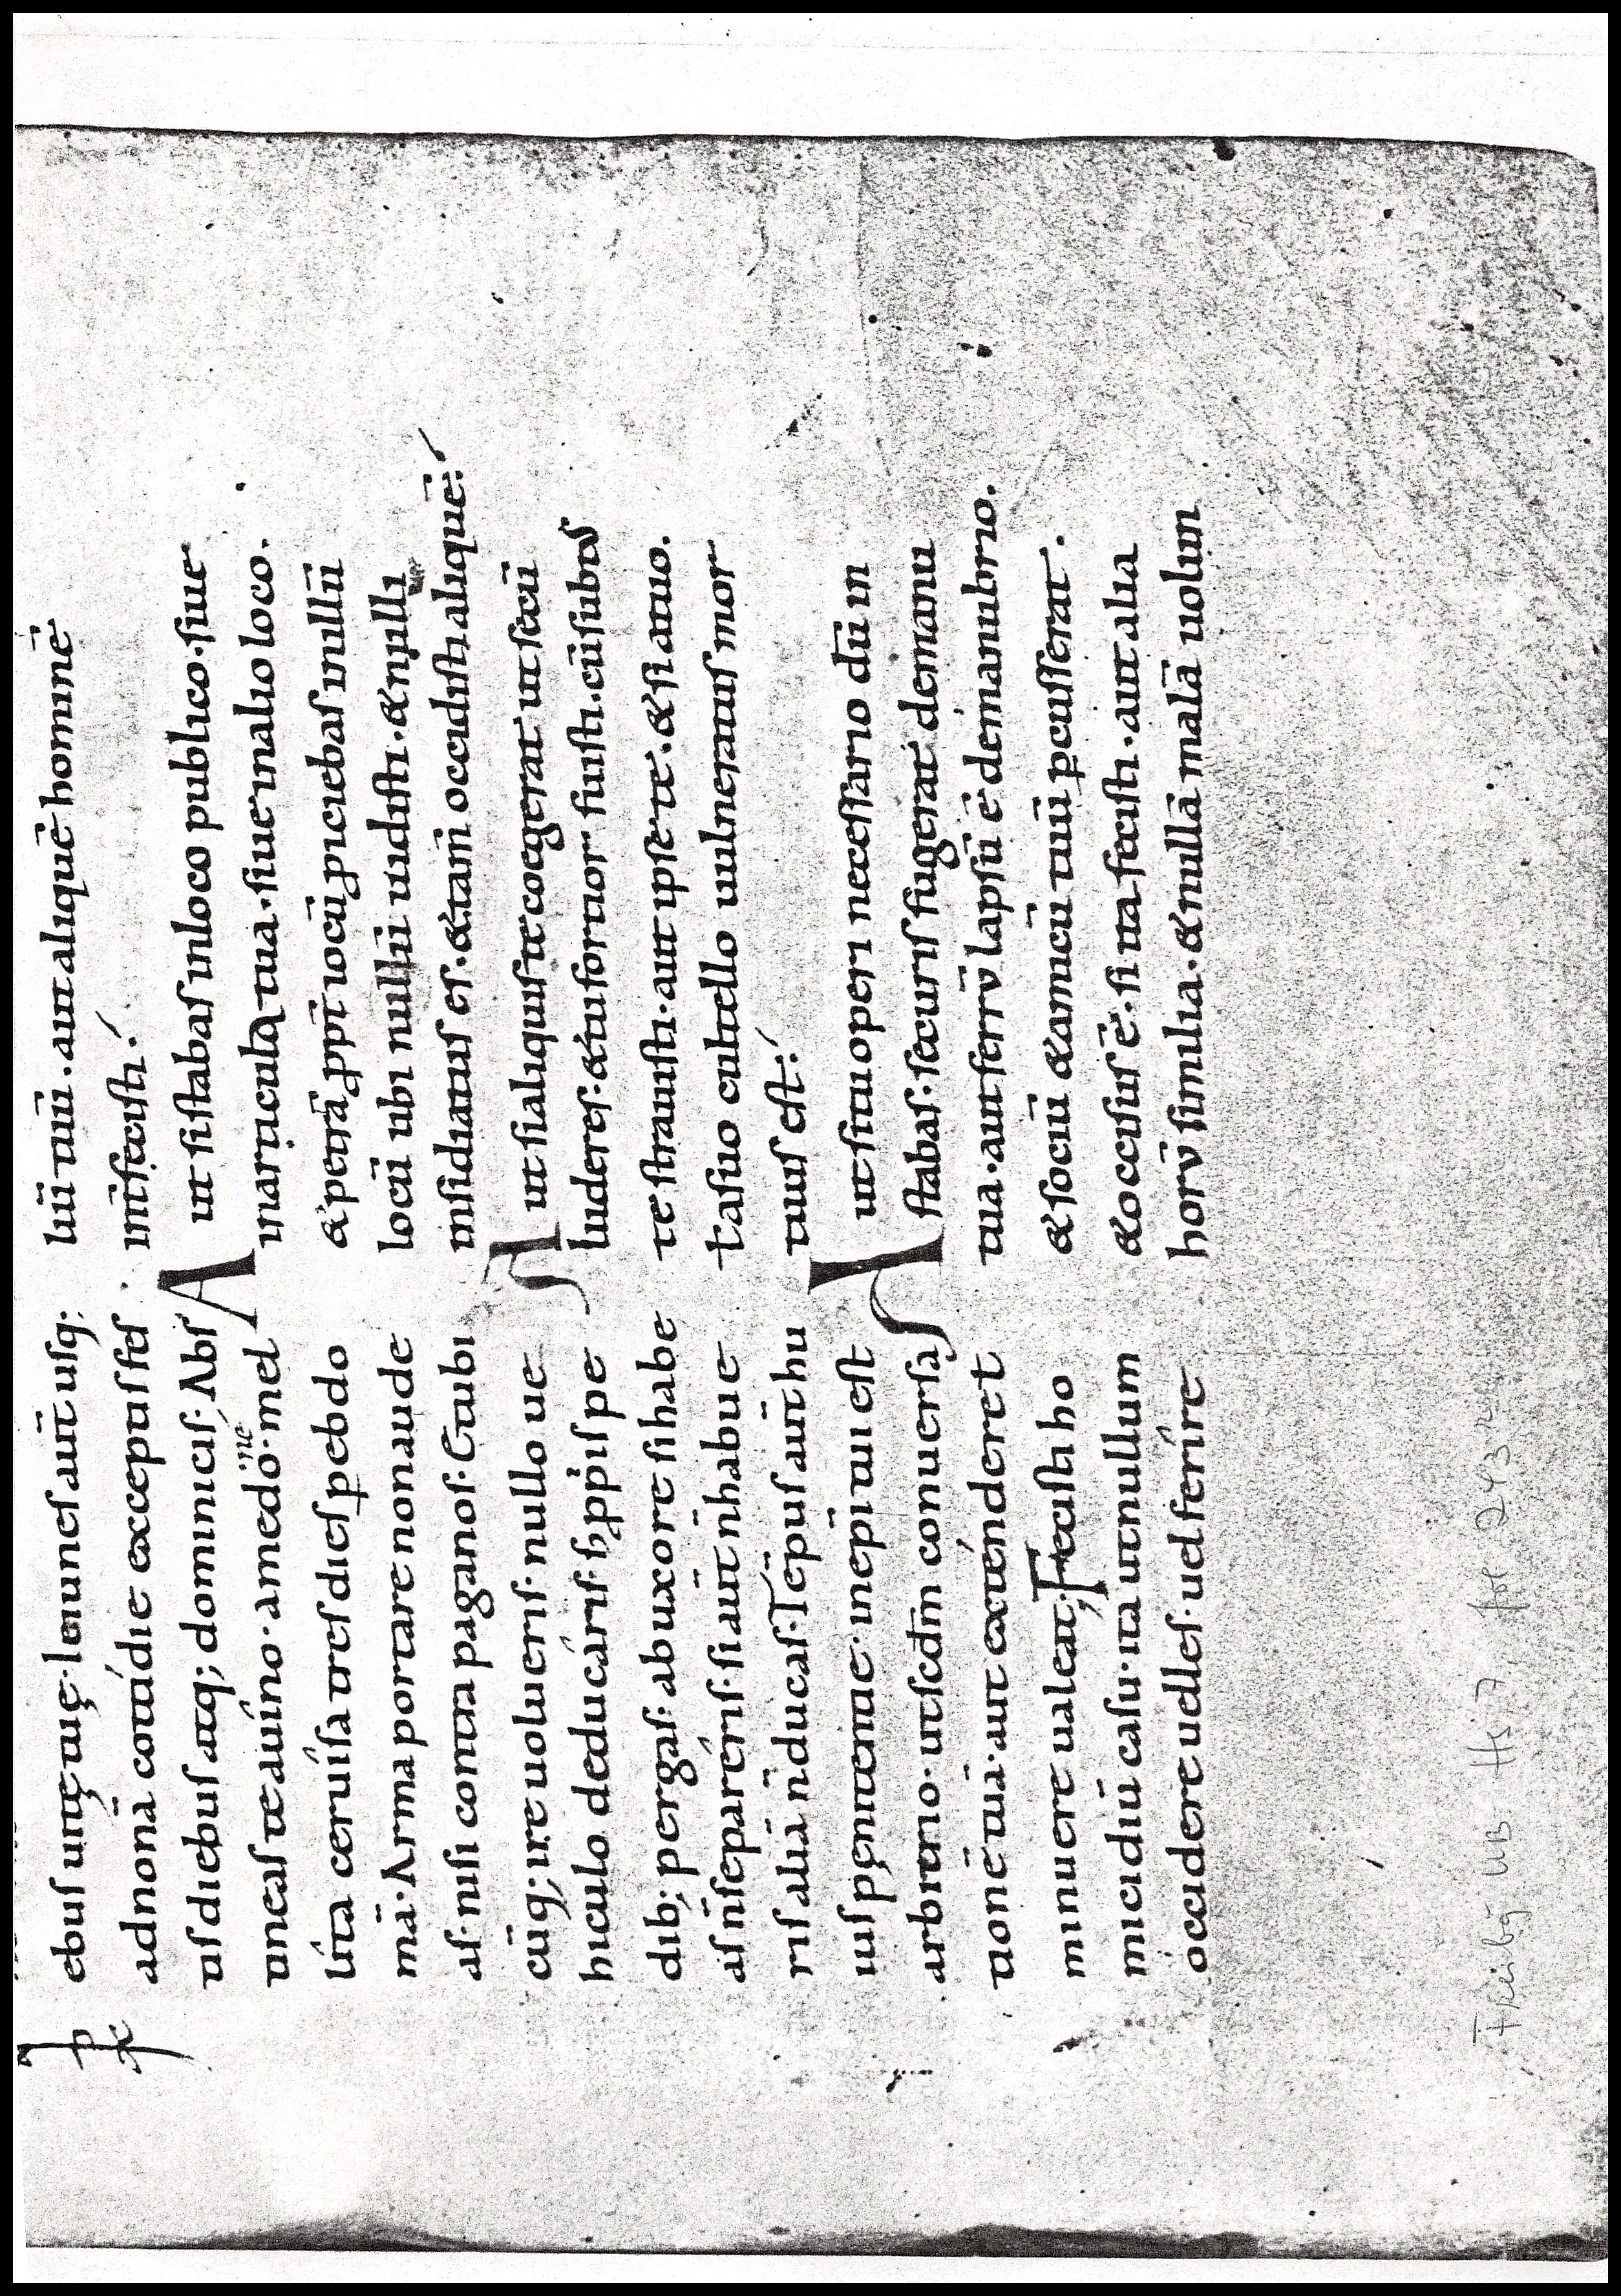 ebus uitę tuę. Ieiunes aut̄ usq;
ad nonā cottídie exceptis fes
tis diebus atq; dominicis. Abs
tineas te a uíno. a medo. mel
ne
líta ceruísa tres dies p ebdo
mā. Arma portare non aude
as. nisi contra paganos. Et ubi
cūq; ire uolueris. nullo ue
hiculo deducáris. s; ꝓpriis pe
dib; pergas. ab uxore si habe
as n̄ separéris. si aut̄ n̄ habue
ris aliā n̄ ducas. Tēpus aut̄ hu
ius pęnitentiae. incipiat est
arbitrio. ut scd̄m conuersa
tionē tuā. aut exténderet
minuere ualeat; Fecisti ho
micidiū casu. ita ut nullum
occidere uelles. uel feríre
liū tuū. aut aliquē hominē
inter fecisti.
Aut si stabas in loco publico. siue
in articula tua. siue in alio loco.
& petrā ꝓpt̄ iocū ꝓiciebas in illū
locū ubi nullū uidisti. & nulli
insidiatus es. & tam̄ occidisti aliquē.
Aut si aliquis te coegerat ut secū
luderes. & tu fortior fuisti. cū sub tus
te strauisti. aut ipse te. & si a tuo.
ta suo cultello uulneratus mor
tuus est.
Aut si tu operi necessario dū in
stabas. securis fugerat de manu
tua. aut ferrū lapsū ē de manubrio.
& sociū & amicū tuū pcusserat.
& occisus ē. si ita fecisti. aut alia
horū similia. & nullā malā uolun
Freibg UB Hs 7, fol 243